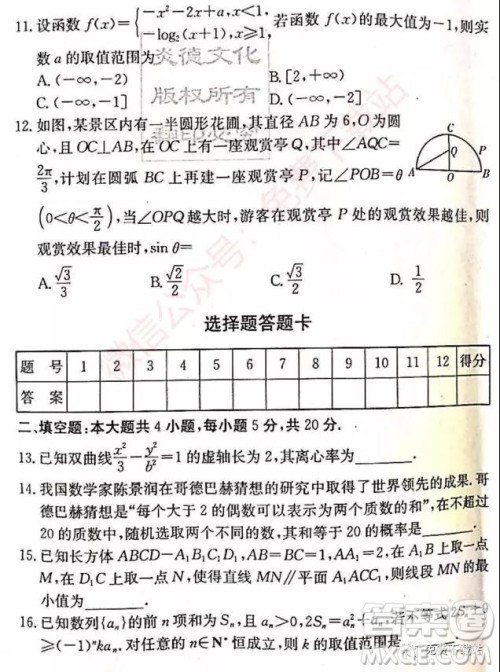 11. 设函数 f(x)={ -x²-2x+a, x<1, -log₂(x+1), x≥1, 若函数 f(x) 的最大值为 -1, 则实
数 a 的取值范围为
A. (-∞, -2) B. [2, +∞)
C. (-∞, -1] D. (-∞, -2]
炎德文化
版权所有
12. 如图, 某景区内有一半圆形花圃, 其直径 AB 为 6, O 为圆
心, 且 OC⊥AB, 在 OC 上有一座观赏亭 Q, 其中∠AQC=
2π/3, 计划在圆弧 BC 上再建一座观赏亭 P, 记∠POB=θ
(0<θ<π/2), 当∠OPQ 越大时, 游客在观赏亭 P 处的观赏效果越佳, 则
观赏效果最佳时, sin θ=
A. √3/3 B. √2/2 C. √3/2 D. 1/2
C
Q P
A O B
选择题答题卡
题 号 1 2 3 4 5 6 7 8 9 10 11 12 得分
答 案
二、填空题: 本大题共 4 小题, 每小题 5 分, 共 20 分.
13. 已知双曲线 x²/3 - y²/b² =1 的虚轴长为 2, 其离心率为______.
14. 我国数学家陈景润在哥德巴赫猜想的研究中取得了世界领先的成果. 哥
德巴赫猜想是“每个大于 2 的偶数可以表示为两个质数的和”, 在不超过
20 的质数中, 随机选取两个不同的数, 其和等于 20 的概率是______.
15. 已知长方体 ABCD-A₁B₁C₁D₁, AB=BC=1, AA₁=2, 在 A₁B 上取一点
M, 在 D₁C 上取一点 N, 使得直线 MN∥平面 A₁ACC₁, 则线段 MN 的最
小值为______.
16. 已知数列{aₙ}的前 n 项和为 Sₙ, 且 aₙ>0, 2Sₙ=aₙ²+aₙ, 若不等式 2Sₙ+9
≥(-1)ⁿkaₙ. 对任意的 n∈N* 恒成立, 则 k 的取值范围是
微信公众号: